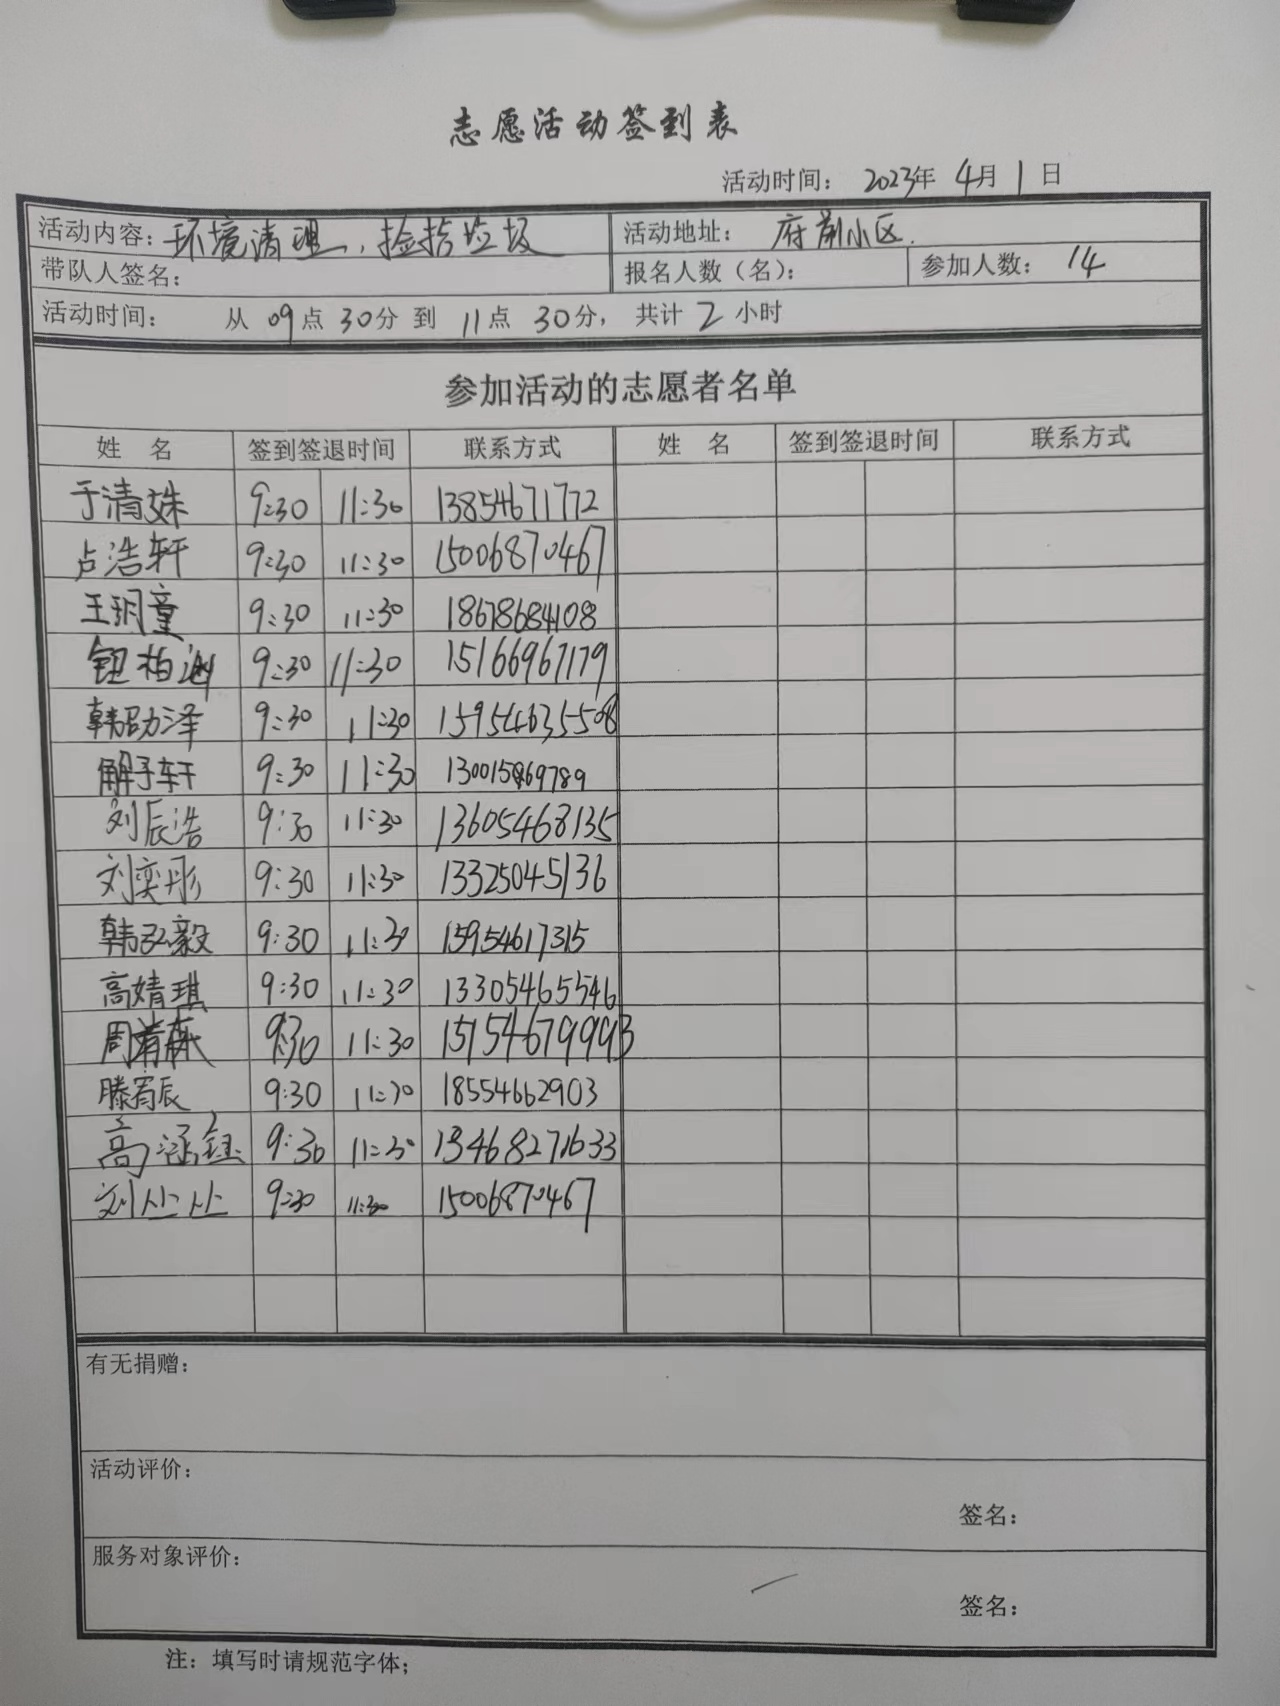 志愿活动签到表
活动时间： 2023年 4月 1日
活动内容：环境清理，捡拾垃圾 活动地址： 府前小区.
带队人签名： 报名人数（名）： 参加人数： 14
活动时间： 从 09点 30分 到 11点 30分， 共计 2 小时
参加活动的志愿者名单
姓 名 签到签退时间 联系方式 姓 名 签到签退时间 联系方式
于清姝 9:30 11:30 13854671772
卢浩轩 9:30 11:30 15006870467
王玥童 9:30 11:30 18678684108
9:30 11:30 15166967179
韩劭泽 9:30 11:30 15954635508
解子轩 9:30 11:30
刘辰浩 9:30 11:30 13605468135
刘奕彤 9:30 11:30 13325045136
韩弘毅 9:30 11:30 15954617315
高婧琪 9:30 11:30 13305465546
9:30 11:30 15154679993
滕宥辰 9:30 11:30 18554662903
高涵钰 9:30 11:30 13468271633
刘 9:30 11:30 15006870467
有无捐赠：
活动评价：
签名：
服务对象评价：
签名：
注：填写时请规范字体；